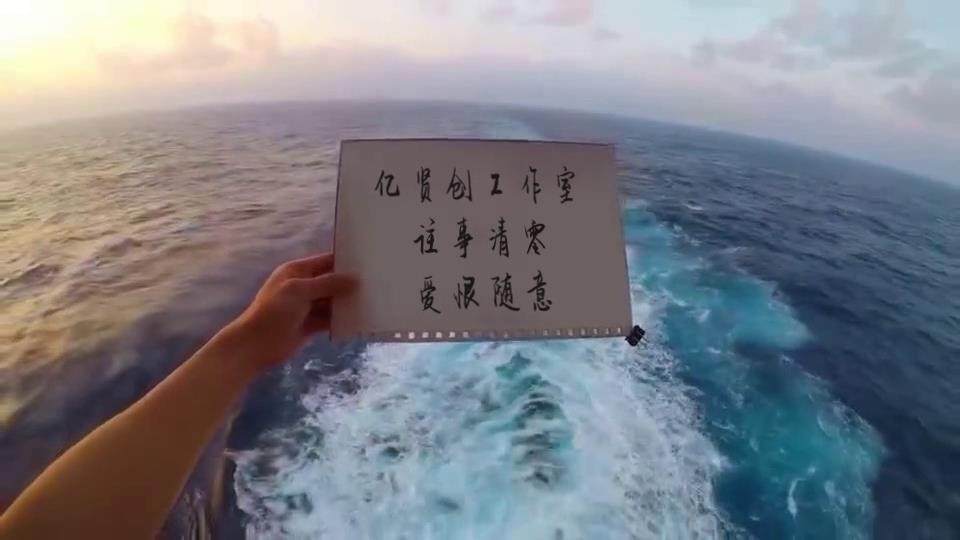 亿贤创工作室
往事清零
爱恨随意